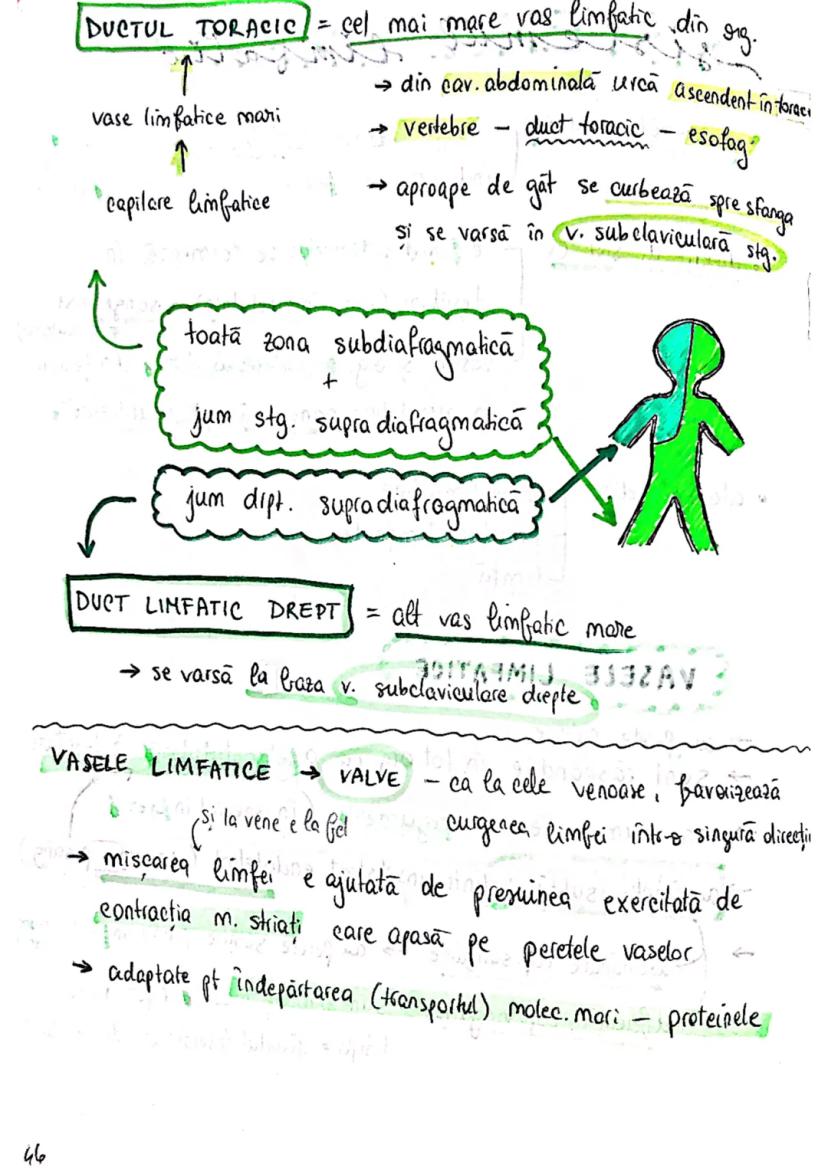 DUCTUL TORACIC = cel mai mare vas limfatic din org.
→ din cav. abdominală urcă ascendent în torace
vase limfatice mari
→ vertebre – duct toracic – esofag
capilare limfatice
→ aproape de gât se curbează spre stânga
și se varsă în v. subclaviculară stg.
toată zona subdiafragmatică
+
jum stg. supradiafragmatică
jum drpt. supradiafragmatică
DUCT LIMFATIC DREPT = alt vas limfatic mare
→ se varsă la baza v. subclaviculare drepte
VASELE LIMFATICE
VASELE LIMFATICE → VALVE – ca la cele venoase, favorizează
curgerea limfei într-o singură direcți
și la vene e la fel
→ mișcarea limfei e ajutată de presiunea exercitată de
contracția m. striați care apasă pe peretele vaselor
→ adaptate pt îndepărtarea (transportul) molec. mari – proteinele
46